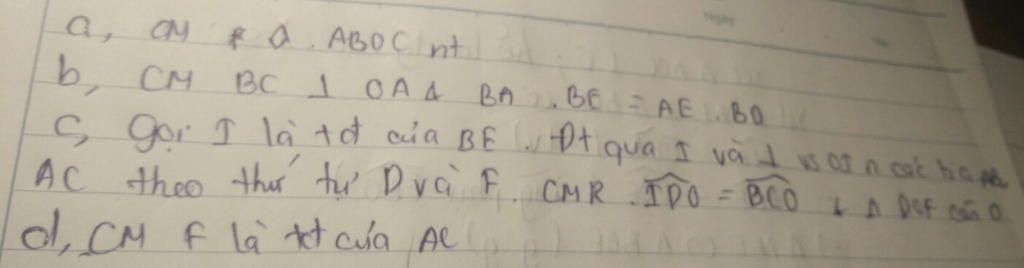 a, CM ◊ . ABOC nt
b, CM BC ⊥ OA & BA . BE = AE . BO
c, gọi I là tđ của BE . Đt qua I và ⊥ vs OI n các tia
AC theo thứ tự D và F. CMR . IDO = BCO & Δ DOF cân O
d, CM F là tđ của AC